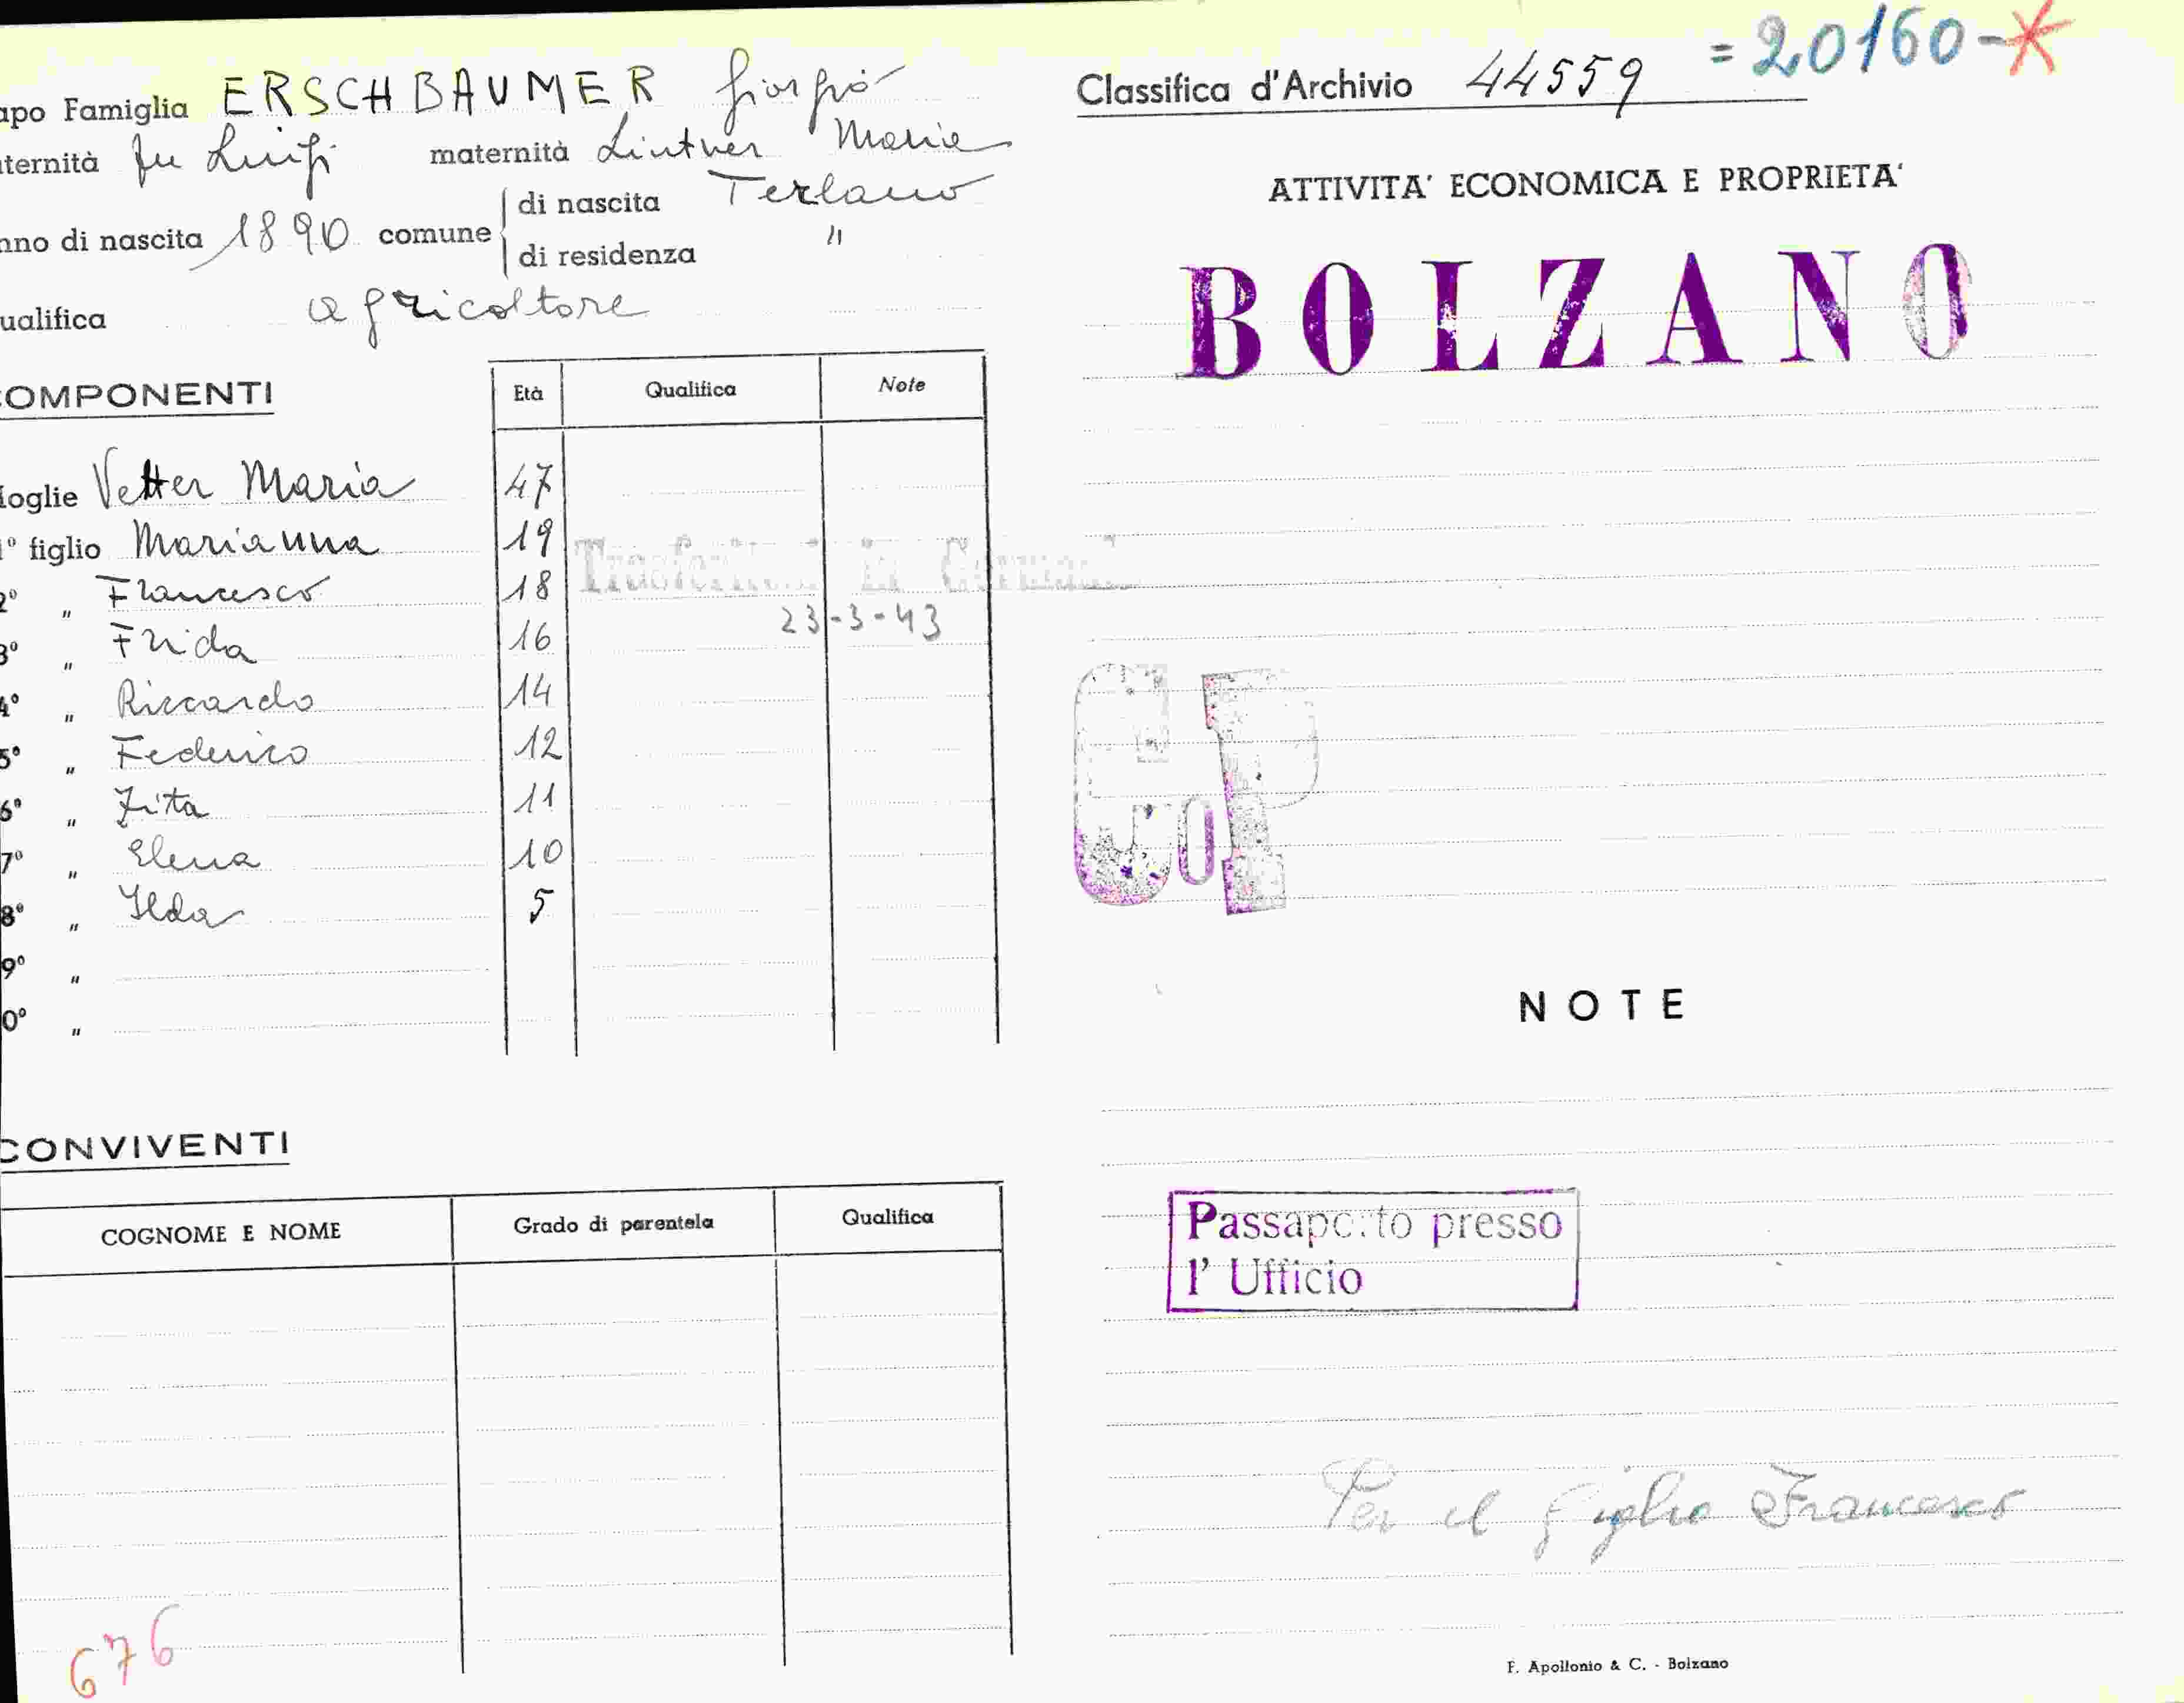 apo Famiglia ERSCHBAUMER Giorgio
ternità fu Luigi maternità Lintner Maria
nno di nascita 1890 comune di nascita Terlano
di residenza "
ualifica agricoltore
COMPONENTI Età Qualifica Note
Moglie Vetter Maria 47
1° figlio Marianna 19
2° " Francesco 18
Trasferitosi in Germania
23-3-43
3° " Frida 16
4° " Riccardo 14
5° " Federico 12
6° " Zita 11
7° " Elena 10
8° " Ilda 5
9° "
0° "
CONVIVENTI
COGNOME E NOME Grado di parentela Qualifica
676
Classifica d'Archivio 44559 = 20160-*
ATTIVITA' ECONOMICA E PROPRIETA'
BOLZANO
NOTE
Passaporto presso
l' Ufficio
Per il figlio Francesco
F. Apollonio & C. - Bolzano